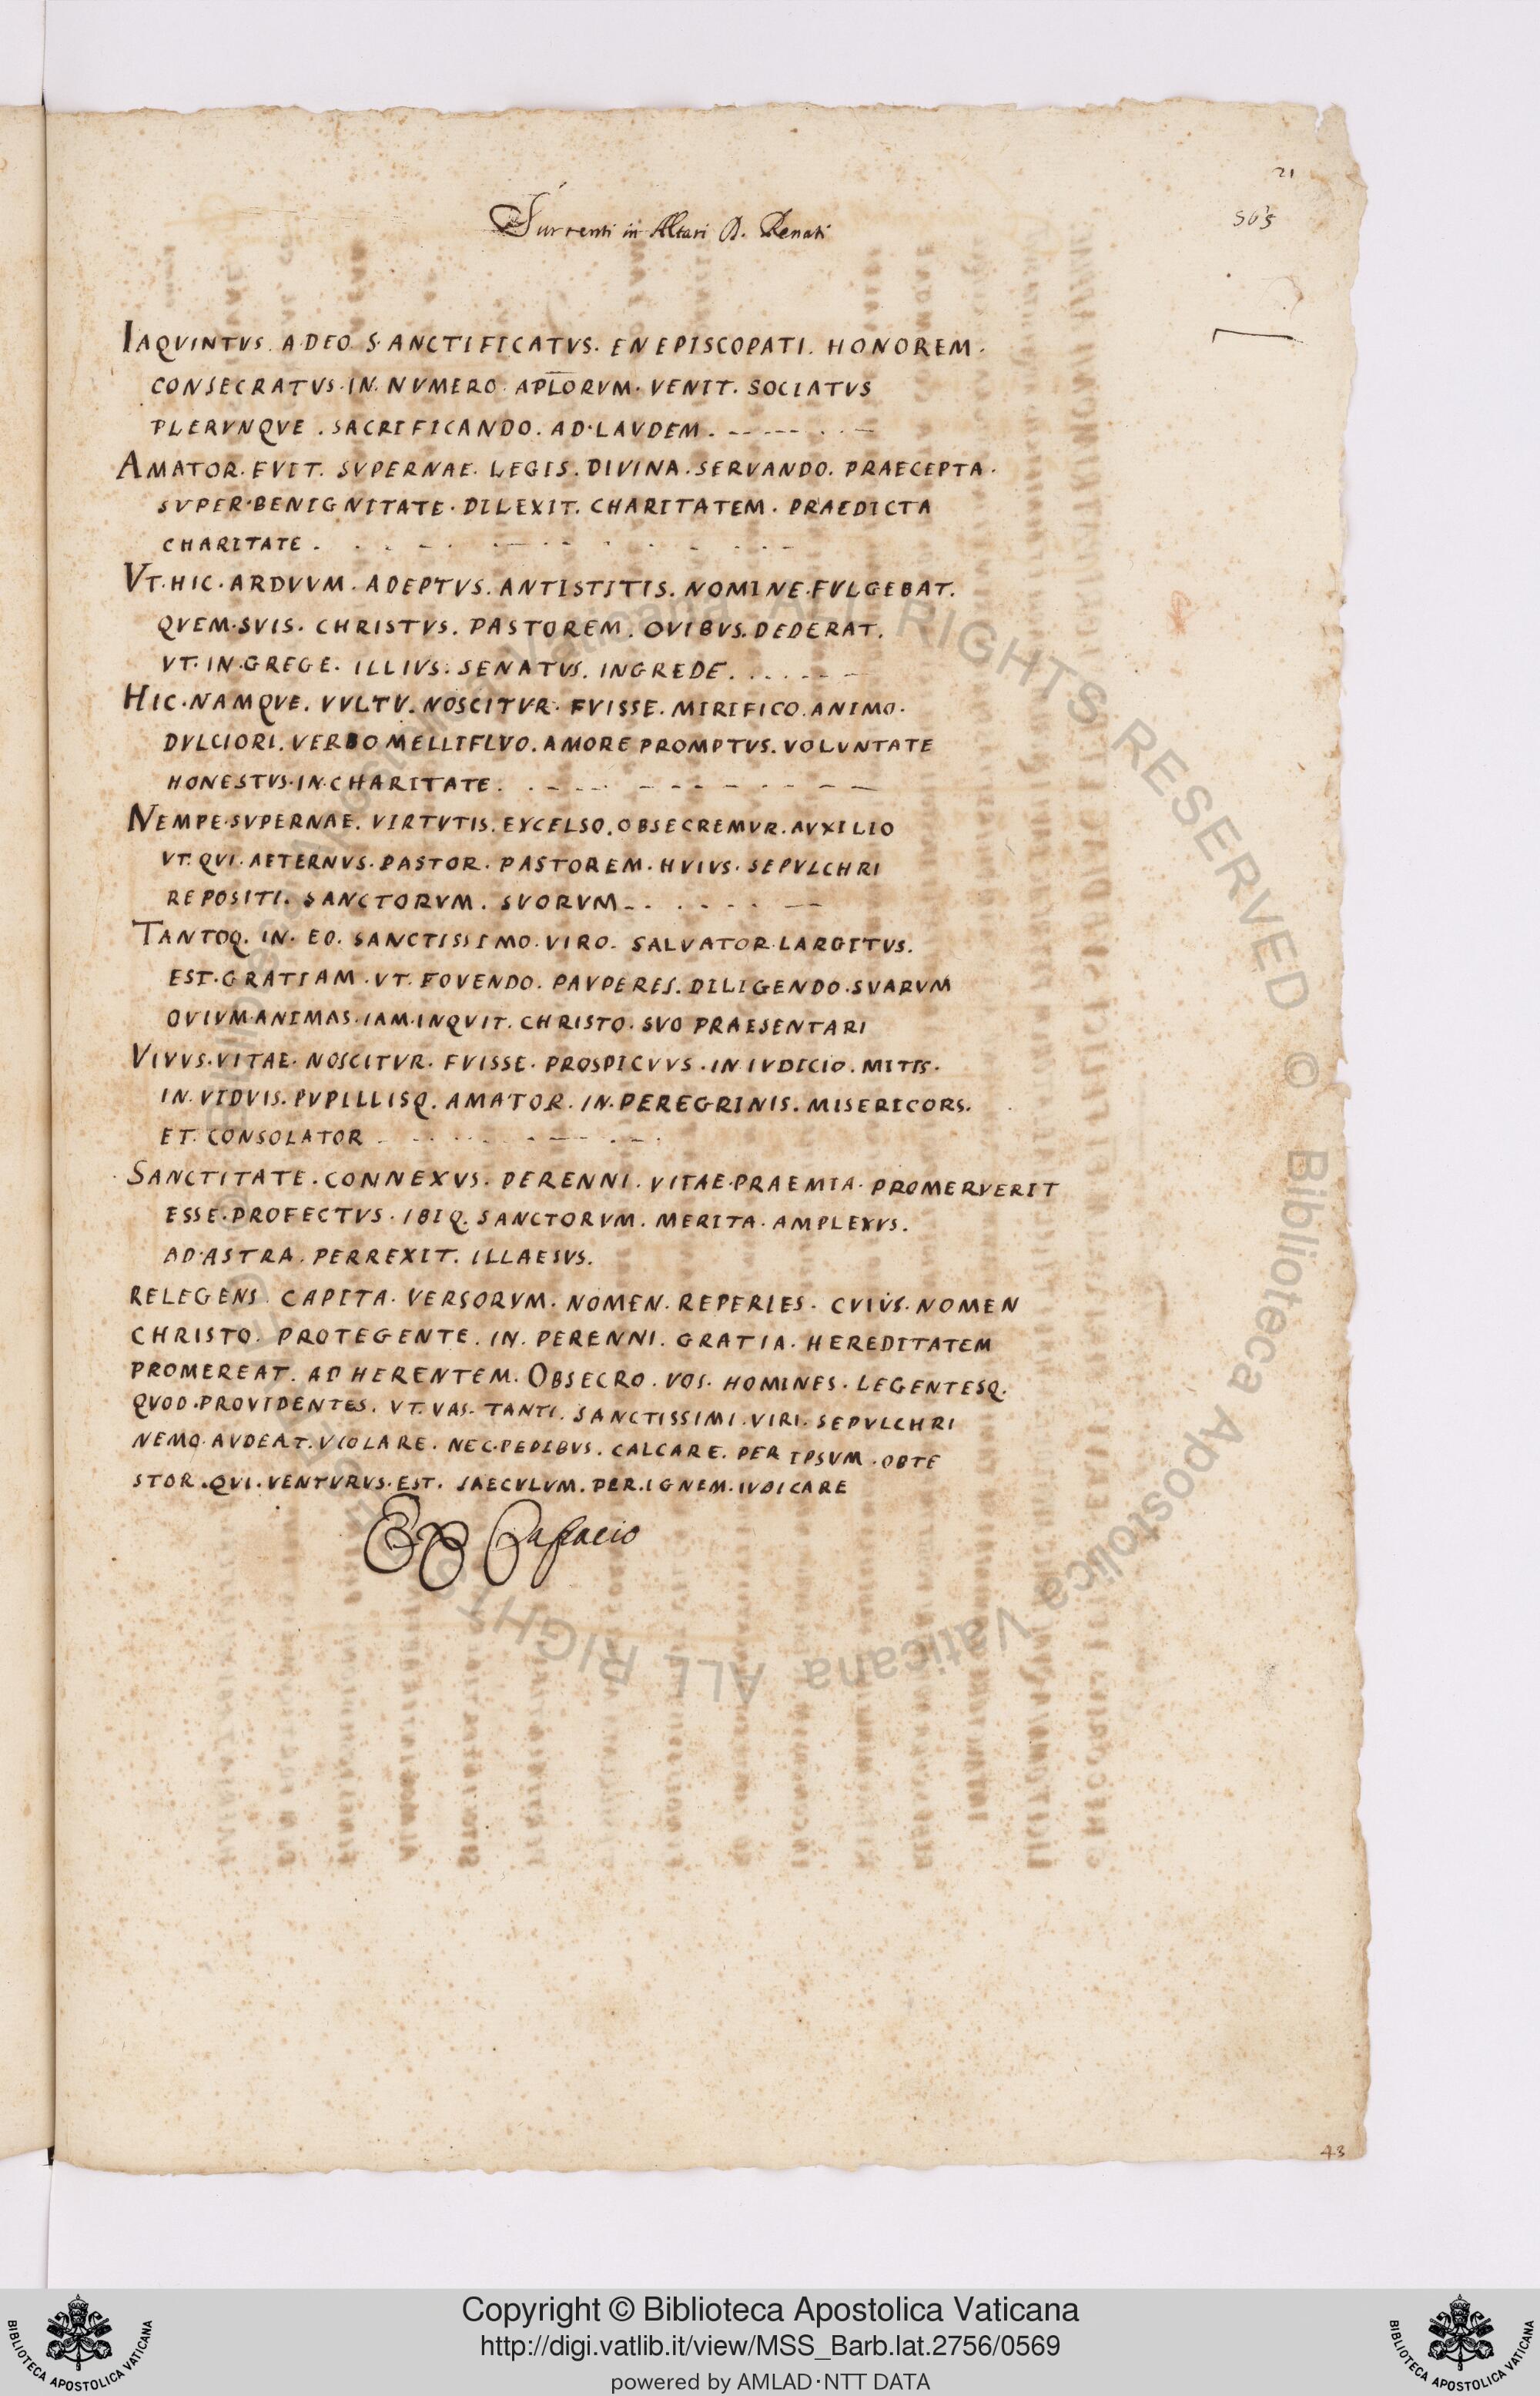 21
565
Surrenti in Altari D. Renati
IAQVINTVS. A DEO. SANCTIFICATVS. EN EPISCOPATI. HONOREM.
CONSECRATVS. IN. NVMERO. APLORVM. VENIT. SOCIATVS
PLERVNQVE. SACRIFICANDO. AD. LAVDEM. - - - - . . -
AMATOR. FVIT. SVPERNAE. LEGIS. DIVINA. SERVANDO. PRAECEPTA.
SVPER. BENIGNITATE. DILEXIT. CHARITATEM. PRAEDICTA
CHARITATE. . . - . - . - . . . - . - -
VT. HIC. ARDVVM. ADEPTVS. ANTISTITIS. NOMINE. FVLGEBAT.
QVEM. SVIS. CHRISTVS. PASTOREM. OVIBVS. DEDERAT.
VT. IN. GREGE. ILLIVS. SENATVS. INGREDE. . . . - - -
HIC. NAMQVE. VVLTV. NOSCITVR. FVISSE. MIRIFICO. ANIMO.
DVLCIORI. VERBO MELLIFLVO. AMORE PROMPTVS. VOLVNTATE
HONESTVS. IN. CHARITATE. . - - . - - - - . - - -
NEMPE. SVPERNAE. VIRTVTIS. EXCELSO. OBSECREMVR. AVXILIO
VT. QVI. AETERNVS. PASTOR. PASTOREM. HVIVS. SEPVLCHRI
REPOSITI. SANCTORVM. SVORVM - . . . . . -
TANTOQ. IN. EO. SANCTISSIMO. VIRO. SALVATOR. LARGITVS.
EST. GRATIAM. VT. FOVENDO. PAVPERES. DILIGENDO. SVARVM
OVIVM. ANIMAS. IAM. INQVIT. CHRISTO. SVO PRAESENTARI
VIVVS. VITAE. NOSCITVR. FVISSE. PROSPICVVS. IN IVDICIO. MITIS.
IN. VIDVIS. PVPILLISQ. AMATOR. IN. PEREGRINIS. MISERICORS.
ET. CONSOLATOR - . - . . - - - . - .
SANCTITATE. CONNEXVS. PERENNI. VITAE. PRAEMIA. PROMERVERIT
ESSE. PROFECTVS. IBIQ. SANCTORVM. MERITA. AMPLEXVS.
AD. ASTRA. PERREXIT. ILLAESVS.
RELEGENS. CAPITA. VERSORVM. NOMEN. REPERIES. CVIVS. NOMEN
CHRISTO. PROTEGENTE. IN. PERENNI. GRATIA. HEREDITATEM
PROMEREAT. AD HERENTEM. OBSECRO. VOS. HOMINES. LEGENTESQ.
QVOD. PROVIDENTES. VT. VAS. TANTI. SANCTISSIMI. VIRI. SEPVLCHRI
NEMO. AVDEAT. VIOLARE. NEC. PEDIBVS. CALCARE. PER IPSVM. OBTE
STOR. QVI. VENTVRVS. EST. SAECVLVM. PER. IGNEM. IVDICARE
Ex Capacio
43
Biblioteca Apostolica Vaticana ALL RIGHTS RESERVED ©
Copyright © Biblioteca Apostolica Vaticana
http://digi.vatlib.it/view/MSS_Barb.lat.2756/0569
powered by AMLAD·NTT DATA
BIBLIOTECA APOSTOLICA VATICANA
BIBLIOTECA APOSTOLICA VATICANA